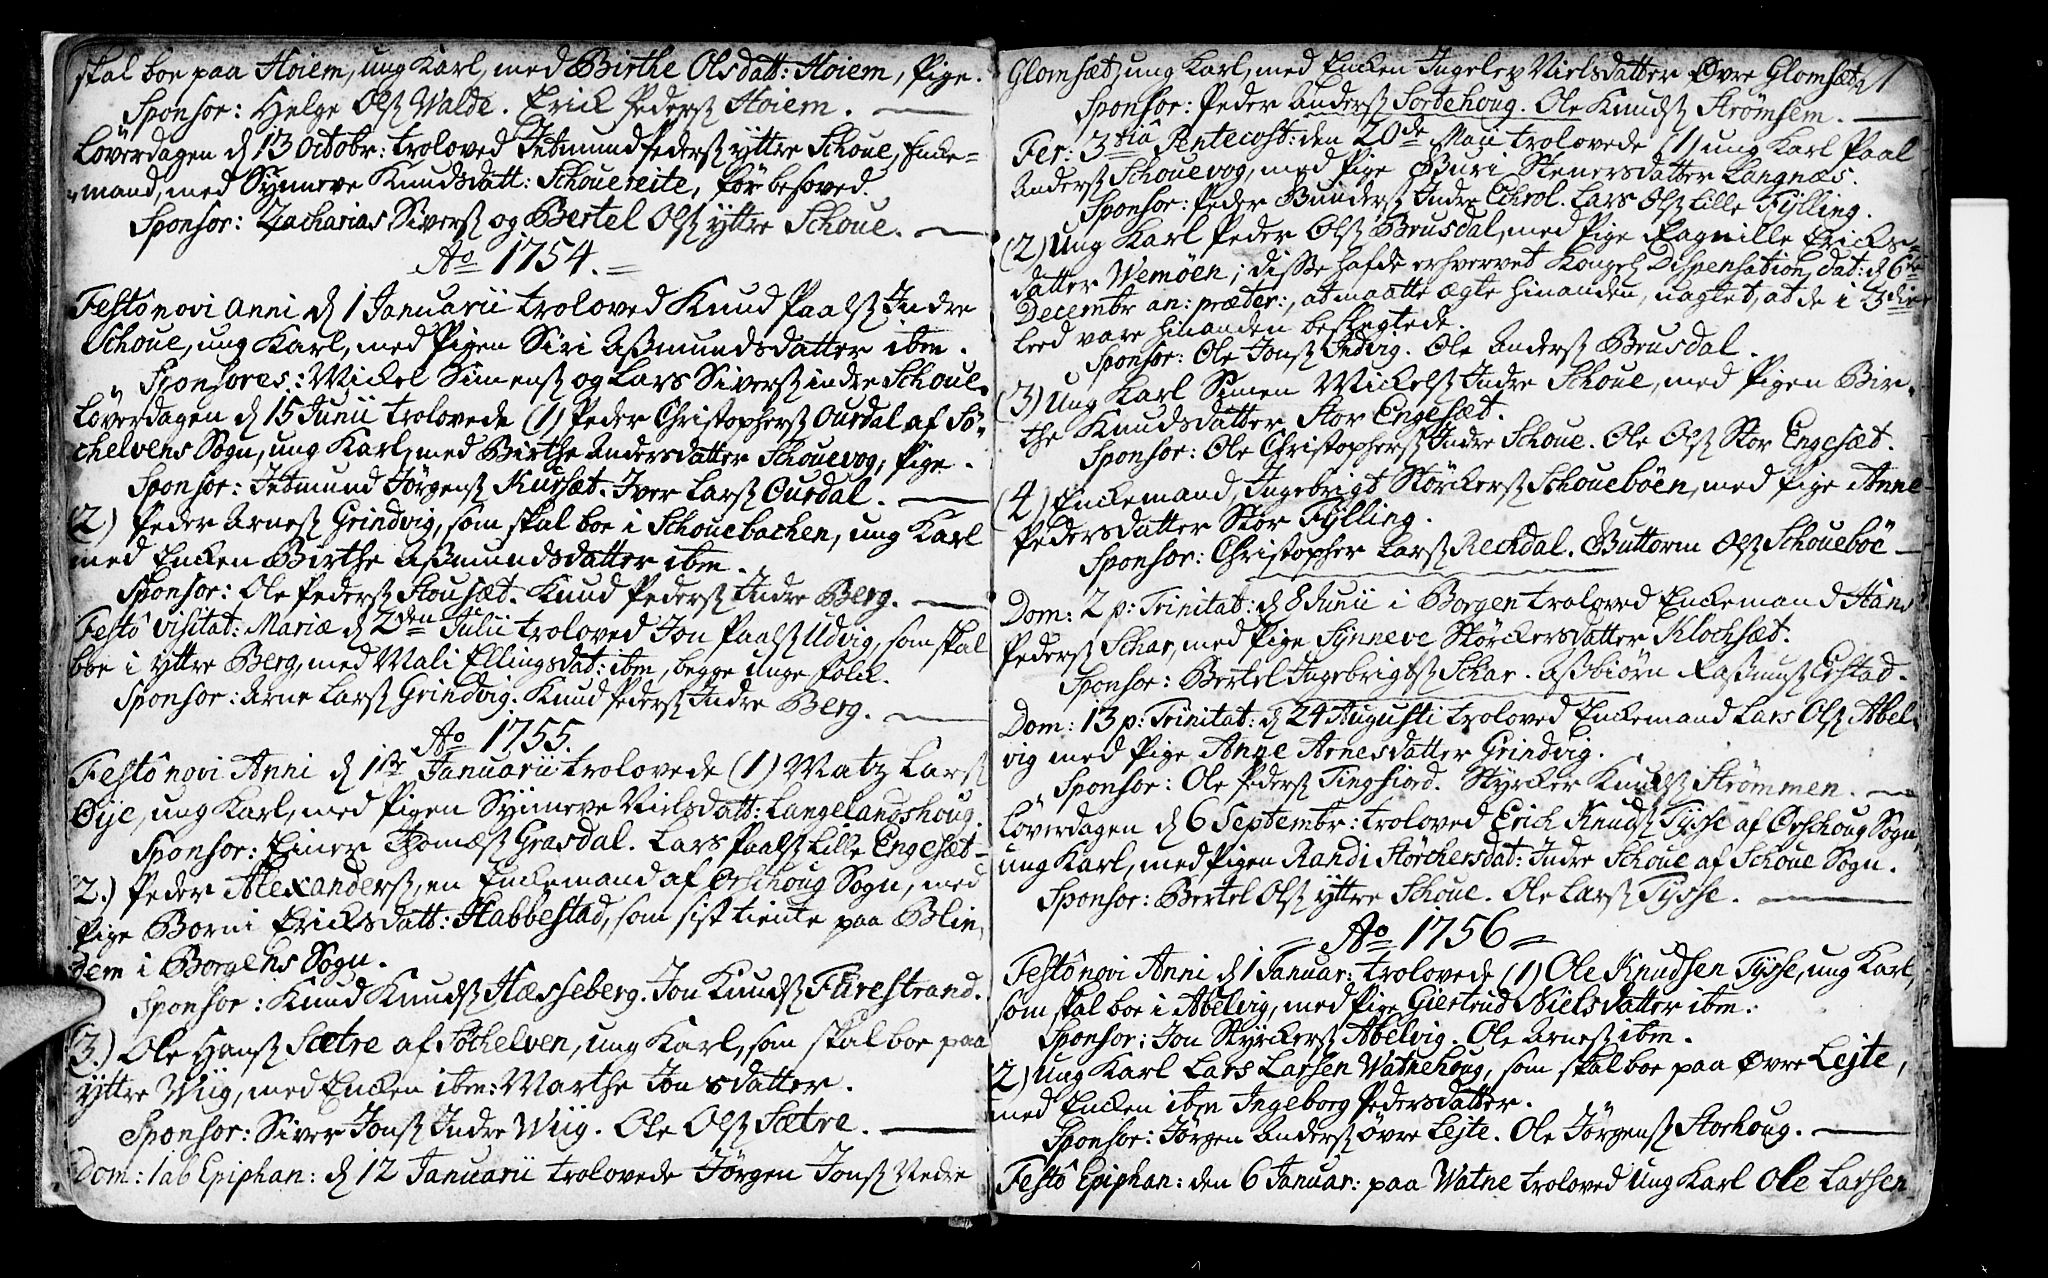 skal boe paa Hoiem, ung Karl, med Birthe Olsdatt: Hoiem, Pige.
Sponsor: Helge Olsʒ Walde. Erick Pedersʒ Hoiem.
Løverdagen d 13 Octobr: troloved Jetmund Pedersʒ yttre Schoue, Encke=
mand, med Synneve Knudsdatt: Schouereite, før besoved.
Sponsor: Zacharias Siversʒ og Bertel Olsʒ yttre Schoue.
Aº 1754.
Festô novi anni d 1 Januarii troloved Knud Paalsʒ Indre
Schoue, ung Karl, med Pigen Siri Asmundsdatter ibm.
Sponsores: Mickel Simensʒ og Lars Siversʒ indre Schoue.
Løverdagen d 15 Junii trolovede (1) Peder Christophersʒ Ourdal af Sø-
chelvens Sogn, ung Karl, med Birthe Andersdatter Schouevog, Pige.
Sponsor: Jetmund Jørgensʒ Kursæt. Iver Larsʒ Ourdal.
2) Peder Arnesʒ Grindvig, som skal boe i Schouebachen, ung Karl
med Encken Birthe Asmundsdatter ibm.
Sponsor: Ole Pedersʒ Stousæt. Knud Pedersʒ Indre Berg.
Festô visitat: Mariæ d 2den Julii troloved Jon Paalsʒ Udvig, som skal
boe i yttre Berg, med Mali Ellingsdat: ibm, begge unge folck.
Sponsor: Arne Larsʒ Grindvig. Knud Pedersʒ Indre Berg.
Aº 1755.
Festô novi Anni d 1ste Januarii trolovede (1) Matz Larsʒ
Øye, ung Karl, med Pigen Synneve Nielsdatt: Langelandshoug.
Sponsor: Einer Thomæsʒ Grasdal. Lars Paalsʒ Lille Engesæt
2.) Peder Alexandersʒ, en Enckemand af Ørschoug Sogn, med
Pige Borni Ericksdatt: Habbestad, som sist tiente paa Blin,
dem i Borgens Sogn.
Sponsor: Knud Knudsʒ Hæsseberg. Jon Knudsʒ Fürestrand.
3.) Ole Hansʒ Sætre af Søchelven, ung Karl, som skal boe paa
yttre Wiig, med Encken ibm: Marthe Jonsdatter.
Sponsor: Siver Jonsʒ Indre Wiig. Ole Olsʒ Sætre.
Dom: 1 ab Epiphan: d 12 Januarii trolovede Jørgen Jonsʒ Nedre
Glomsæt, ung Karl, med Encken Ingelev Nielsdatter Øvre Glomsæt.
Sponsor: Peder Andersʒ Sortehoug. Ole Knudsʒ Strømsem.
Fer: 3tiâ Pentecost: den 20de Maii trolovede (1) ung Karl Paal
Andersʒ Schouevog, med Pige Guri Stenersdatter Langnæs.
Sponsor: Peder Gundersʒ Indre Schrol. Lars Olsʒ Lille Fylling.
(2) Ung Karl Peder Olsʒ Brusdal, med Pige Ragnille Ericks=
datter Wemøen; disse hafde erhvervet Kongel Dispensation, dat: d 6te
Decembr an: præter:, at maatte ægte hinanden, uagtet, at de i 3die
leed vare hinanden beslegtede.
Sponsor: Ole Jonsʒ Indvig. Ole Andersʒ Brusdal.
(3) Ung Karl Simen Mickelsʒ Indre Schoue, med Pigen Bir-
the Knudsdatter Stor Engesæt.
Sponsor: Ole Christophersʒ Indre Schoue. Ole Olsʒ Stor Engesæt.
(4) Enckemand, Ingebrigt Størckersʒ Schouebøen, med Pige Anne
Pedersdatter Stor Fylling.
Sponsor: Christopher Larsʒ Reckdal. Guttorm Olsʒ Schouebøe
Dom: 2 p: Trinitat: d 8 Junii i Borgen troloved Enckemand Hans
Pedersʒ Schar, med Pige Synneve Størckersdatter Klochsæt.
Sponsor: Bertel Ingebrigtsʒ Schar. Asbiørn Rasmusʒ Eestad.
Dom: 13 p: Trinitat: d 24 Augusti troloved Enckemand Lars Olsʒ Abel-
vig med Pige Anne Arnesdatter Grindvig.
Sponsor: Ole Pedersʒ Tingfiord. Styrcker Knudsʒ Strømmen.
Løverdagen d 6 Septembr: troloved Erich Knudsʒ Tysse af Ørschoug Sogn
ung Karl, med Pigen Randi Størchersdat: Indre Schoue af Schoue Sogn.
Sponsor: Bertel Olsʒ yttre Schoue. Ole Larsʒ Tysse.
Aº 1756
Festô novi Anni d 1 Januar: trolovede (1) Ole Knudsen Tysse, ung Karl,
som skal boe i Abelvig, med Pige Giertrud Nielsdatter ibm.
Sponsor: Jon Styrckersʒ Abelvig. Ole Arnesʒ ibm.
2) Ung Karl Lars Larsen Watnehoug, som skal boe paa Øvre Lejte,
med Encken ibm Ingeborg Pedersdatter.
Sponsor: Jørgen Andersʒ øvre Lejte. Ole Jørgensʒ Storhoug.
Festô Epiphan: den 6 Januar: paa Watne troloved Ung Karl Ole Larsen